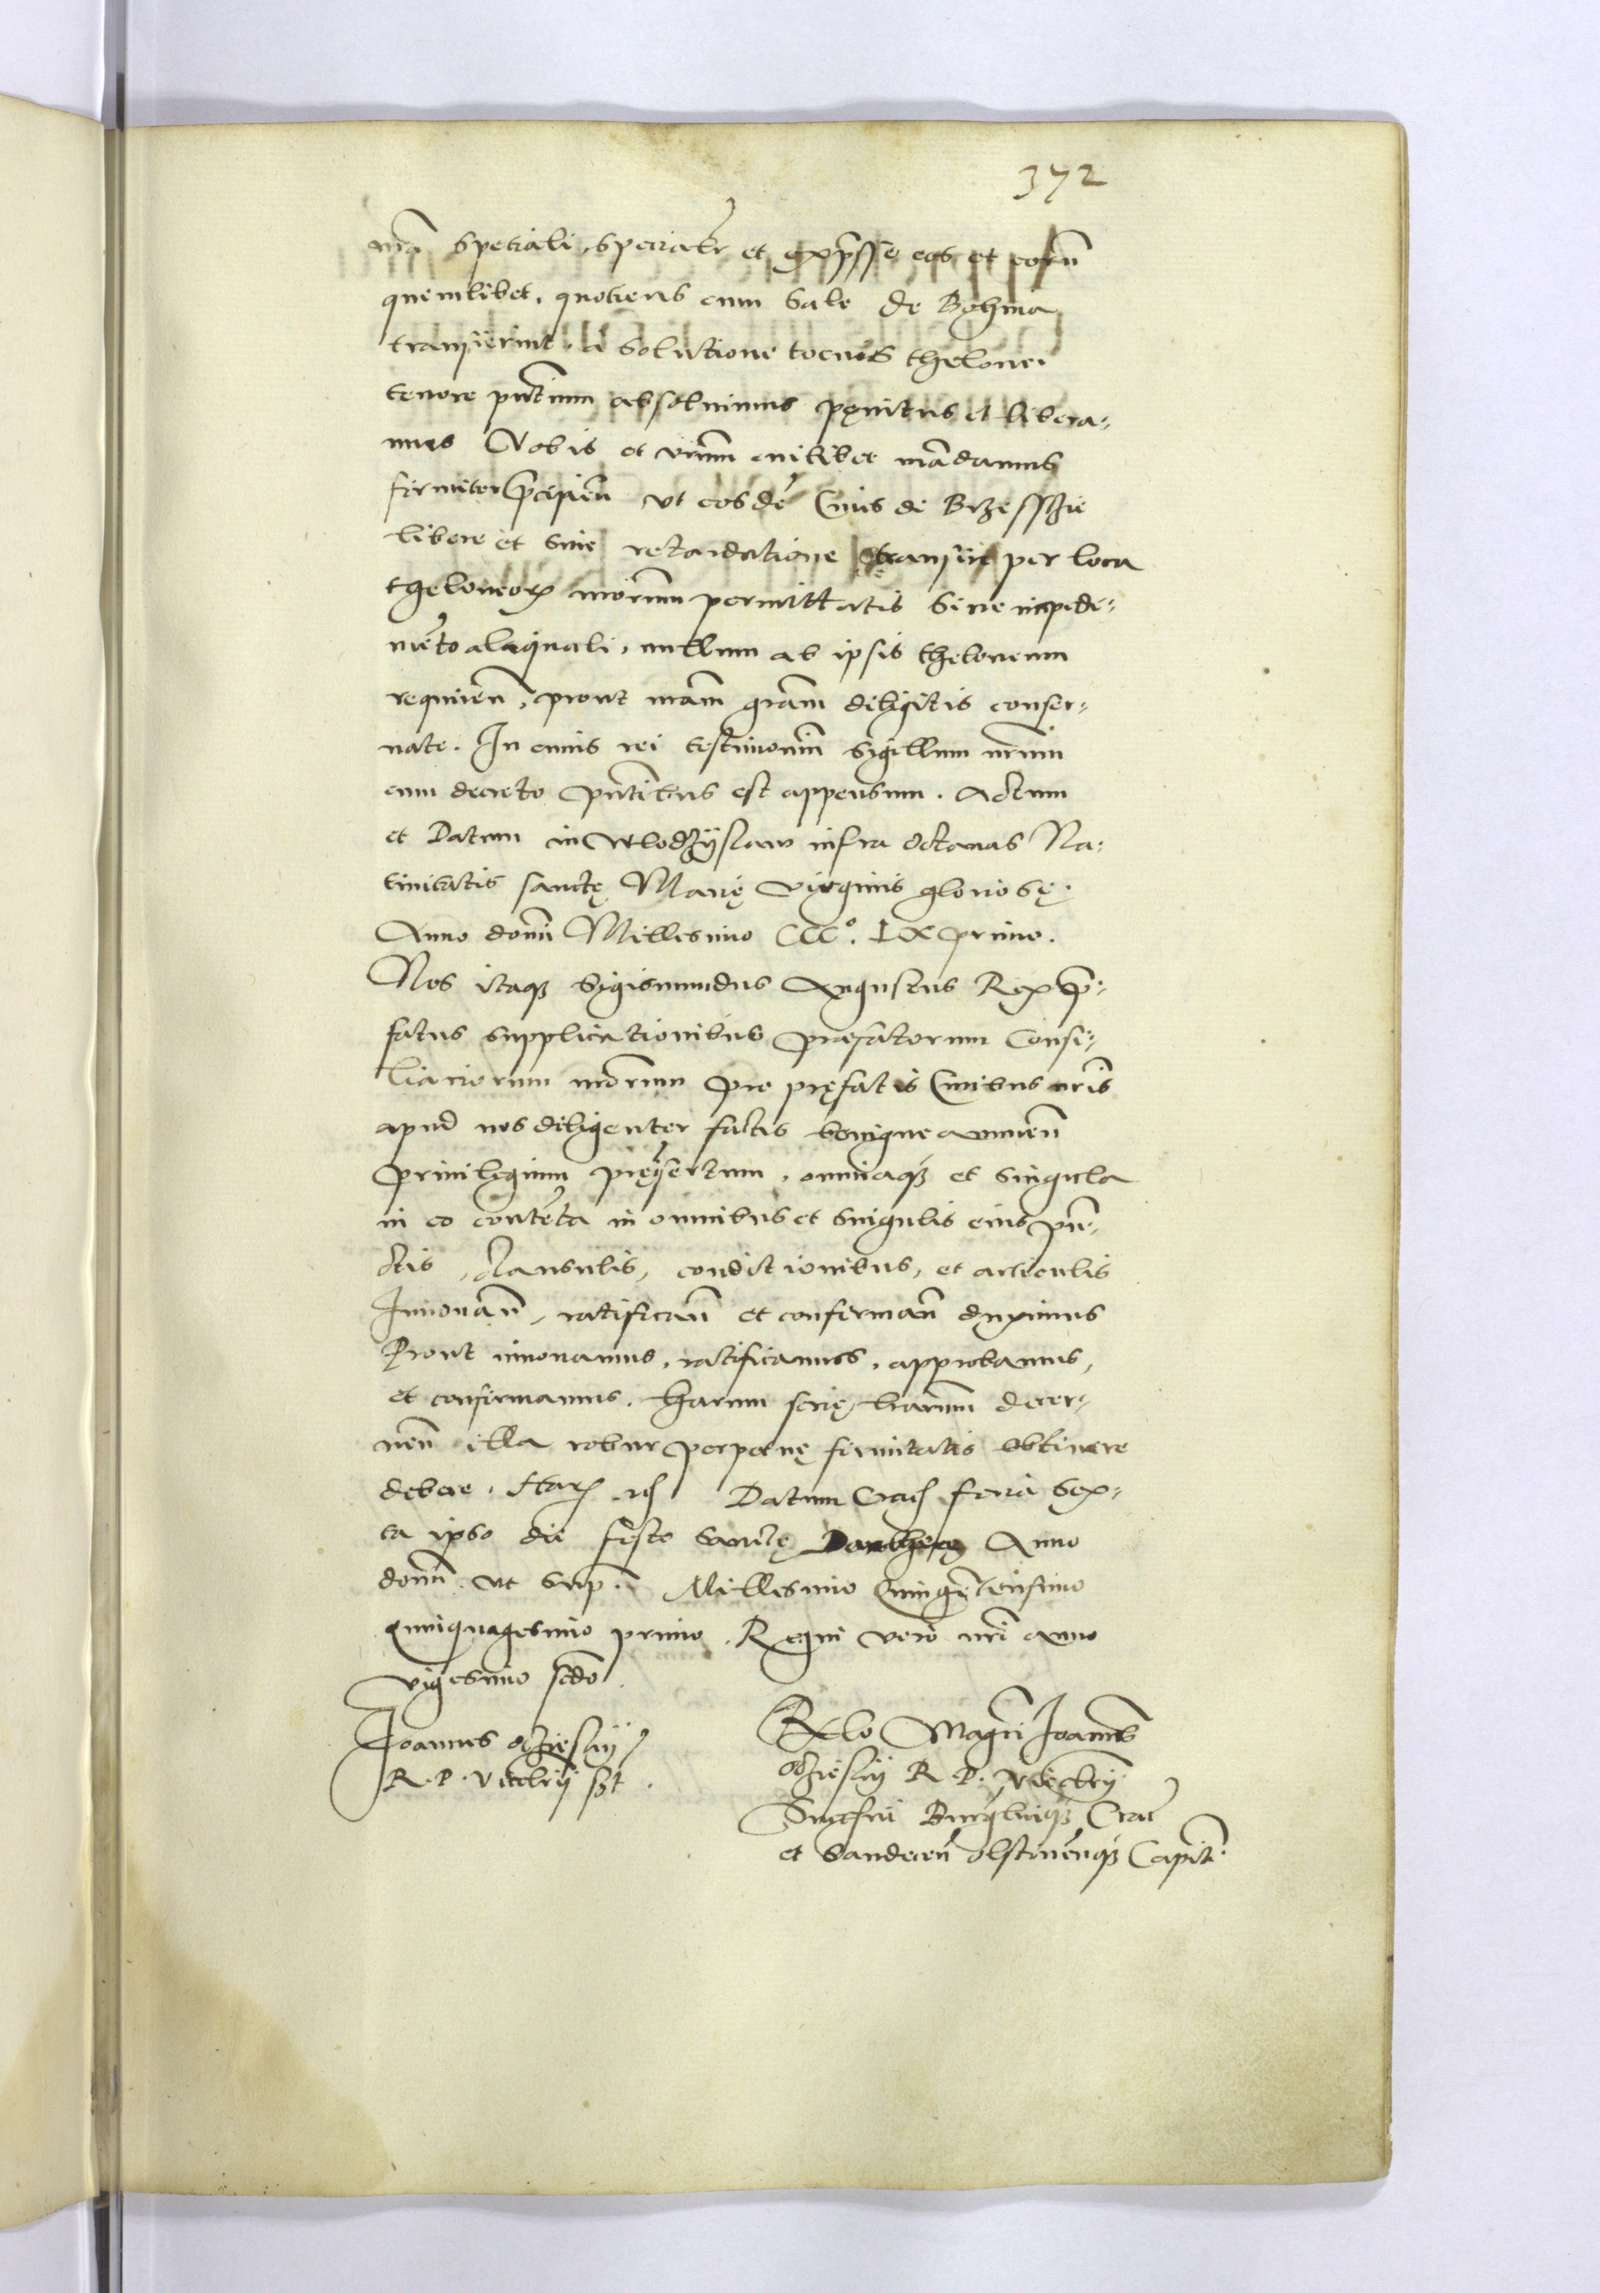 372
nrã speciali, specialr et exp̃sse eos et eorũ
quemlibet, quotiens cum sale de Bohnia
transierint, a solutione tocius thelonei
tenore pñtium absolvimus penitus et libera-
mus Vobis et vr̃um cuilibet mãdamus
firmiter p̃cipieñ ut eosdẽ Cives de Brzessczie
libere et sine retardatione transire per loca
theloneorꝝ nr̃orum permittatis sine impedi-
mẽto aliquali, nullum ab ipsis theloneum
requireñ, prout nr̃am gr̃am diligitis conser-
vate. In cuius rei testimoniũ sigillum nr̃um
cum decreto pñtibus est appensum. Actum
et Datum in Wlodzyslaw infra Octavas Na-
tivitatis sanctę Marię Virginis gloriosę.
Anno domñ Millesimo CCCº. LX primo.
Nos itaqꝫ Sigismundus Augustus Rex p̃-
fatus supplicationibus praefatorum Consi-
liariorum nr̃orum pro pręfatis Civibus nr̃is
apud nos diligenter factis benigne annueñ
privilegium pręinsertum, omniaqꝫ et singula
in eo contẽta in omnibus et singulis eius pũ-
ctis, clausulis, condictionibus, et articulis
Innovanð, ratificanð et confirmanð duximus
Prout innovamus, ratificamus, approbamus,
et confirmamus. harum serię lr̃arum decer-
neñ illa robur perpetuę firmitatis obtinere
debere. Harꝝ Datum Crac feria sex-
ta ipso die festo sanctę Anno
domñ. ut sup. Millesimo Quingẽtesimo
quinquagesimo primo. Regni vero nr̃i anno
vigesimo scðo.
Joannes Ocziesky
R. P. Vicecłrij sst.
Relo Magci Joannis
Ocziesky R. P. Vicecłrij
Succsui Burgrauiiqꝫ Crac
et Sandeceñ Olstinẽnqꝫ Capit.